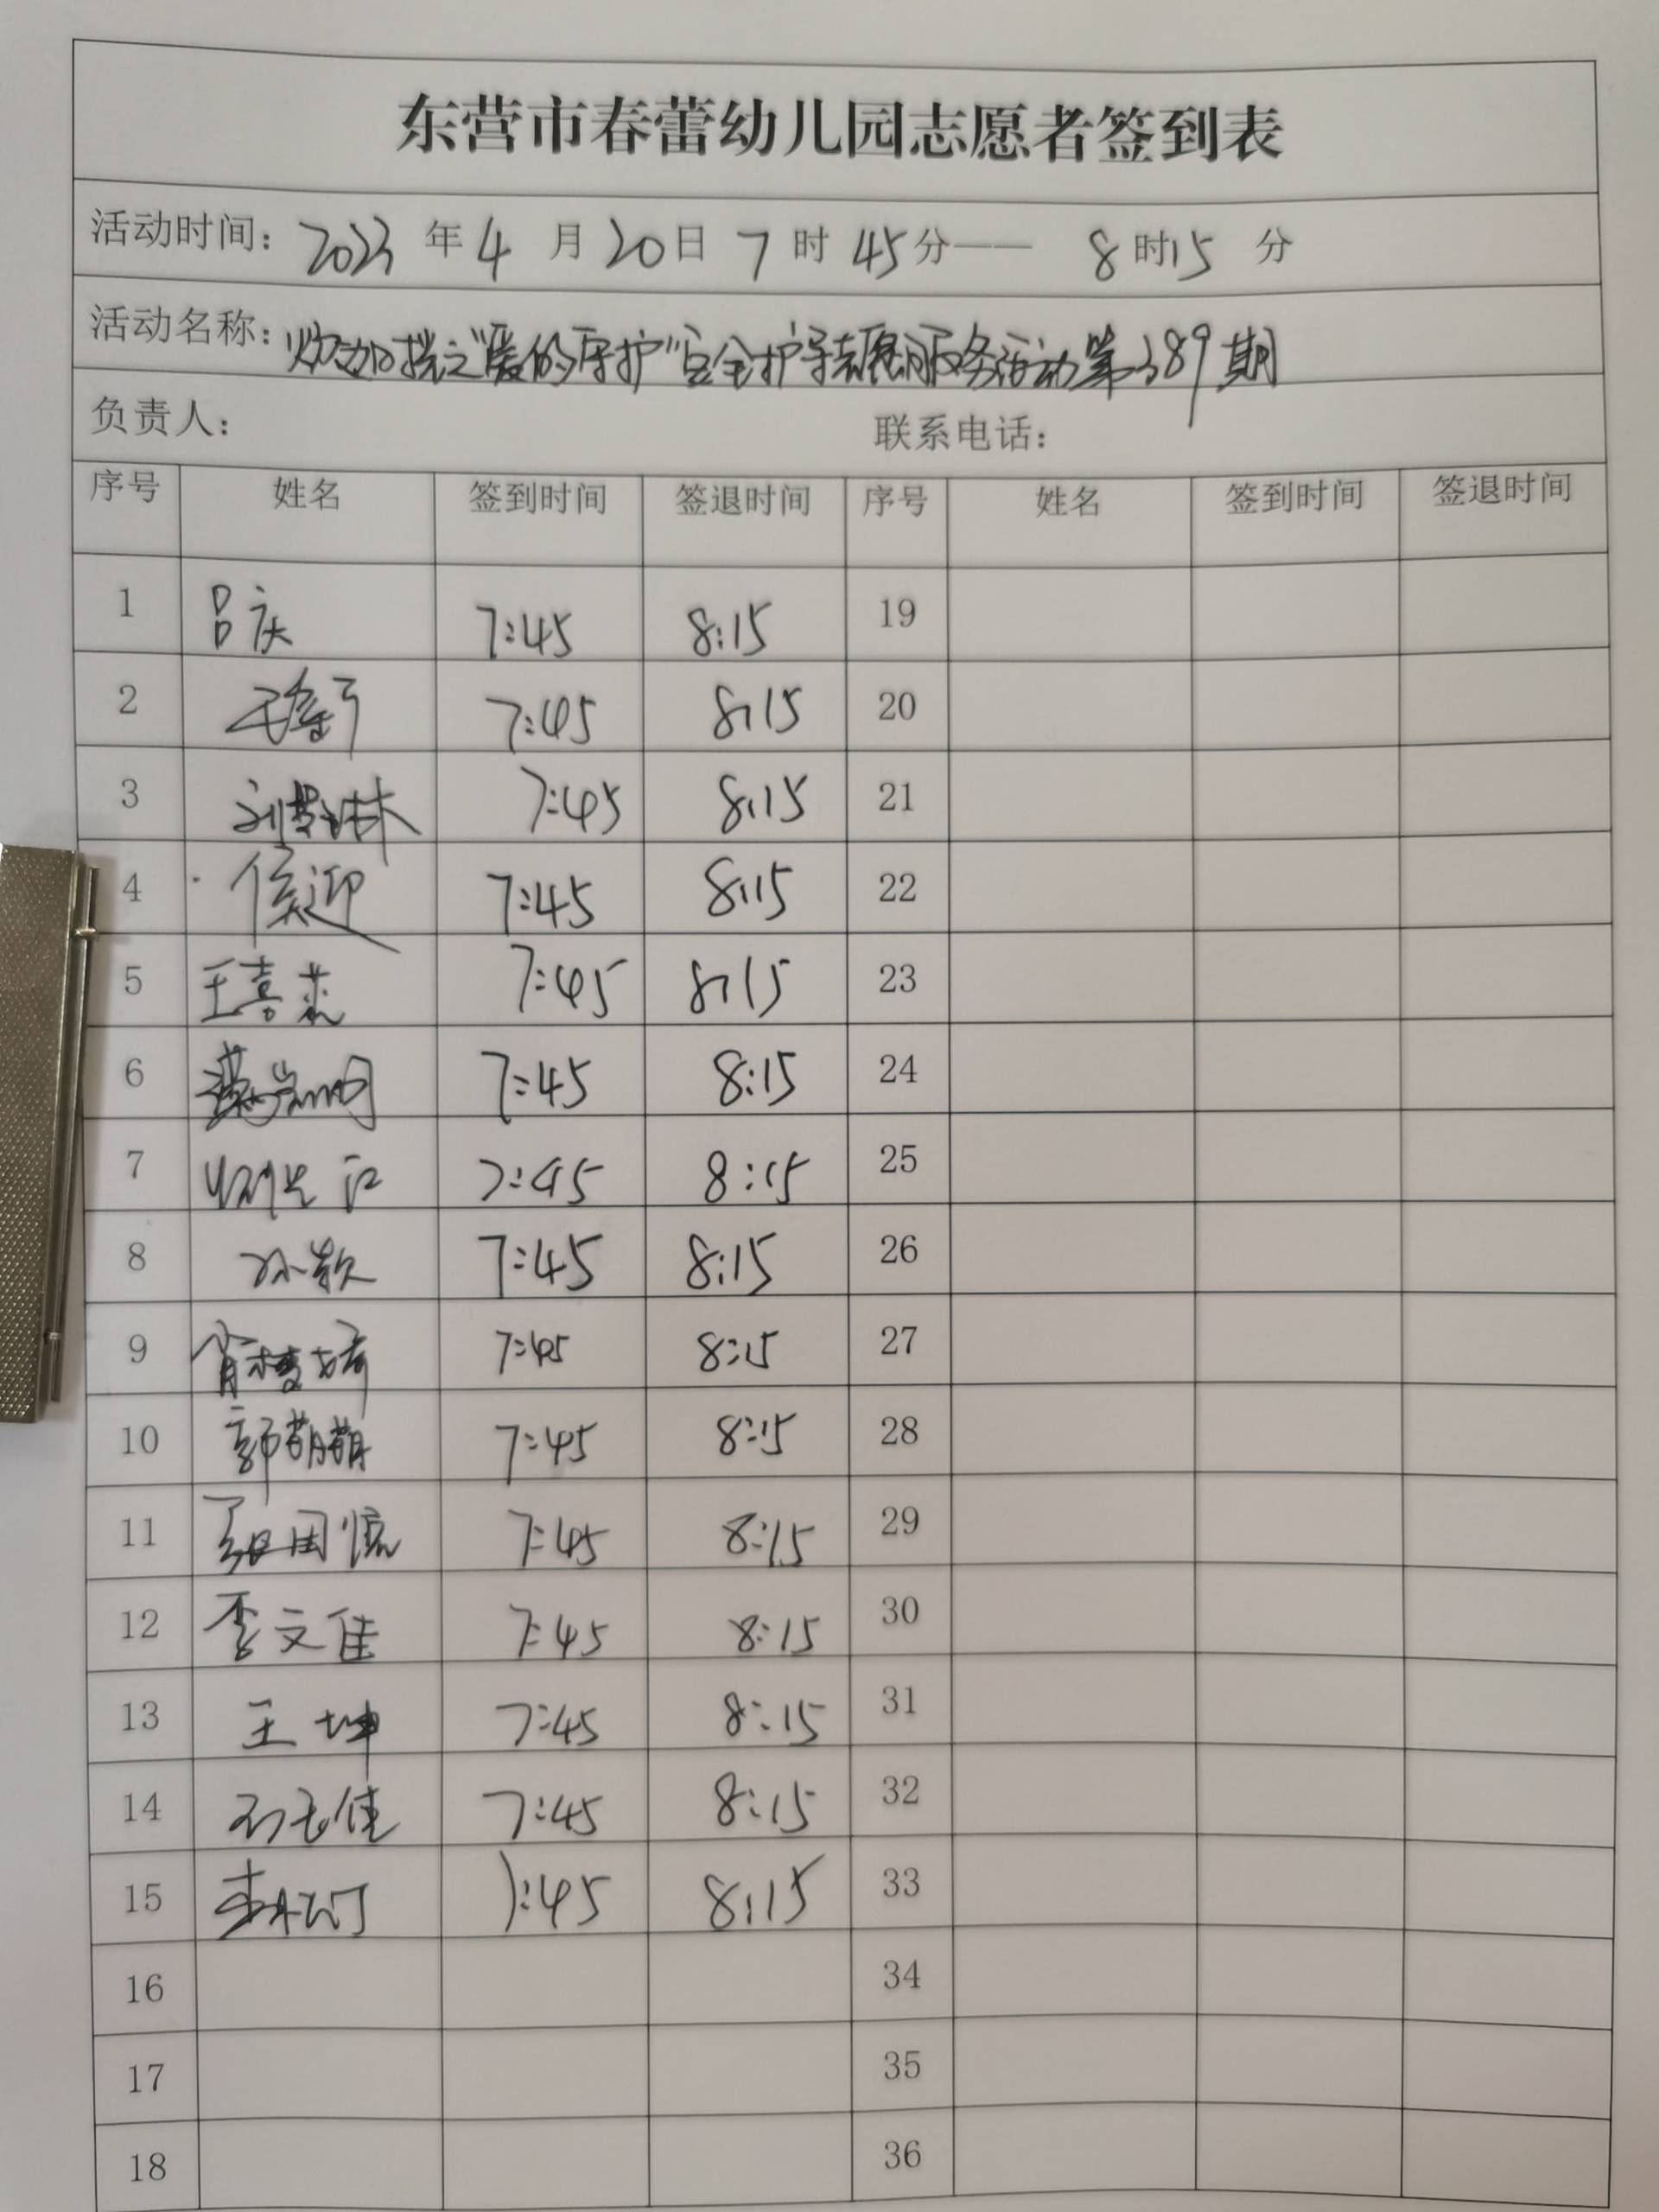 东营市春蕾幼儿园志愿者签到表
活动时间: 2023 年 4 月 20 日 7 时 45 分—— 8 时 15 分
活动名称: 之"爱的守护"安全护导志愿服务活动第389期
负责人: 联系电话:
序号 姓名 签到时间 签退时间 序号 姓名 签到时间 签退时间
1 吕庆 7:45 8:15 19
2 7:45 8:15 20
3 刘梦林 7:45 8:15 21
4 侯迎 7:45 8:15 22
5 王喜 7:45 8:15 23
6 7:45 8:15 24
7 7:45 8:15 25
8 孙款 7:45 8:15 26
9 肖楼琦 7:45 8:15 27
10 郭萌萌 7:45 8:15 28
11 7:45 8:15 29
12 李文佳 7:45 8:15 30
13 王坤 7:45 8:15 31
14 7:45 8:15 32
15 7:45 8:15 33
16 34
17 35
18 36